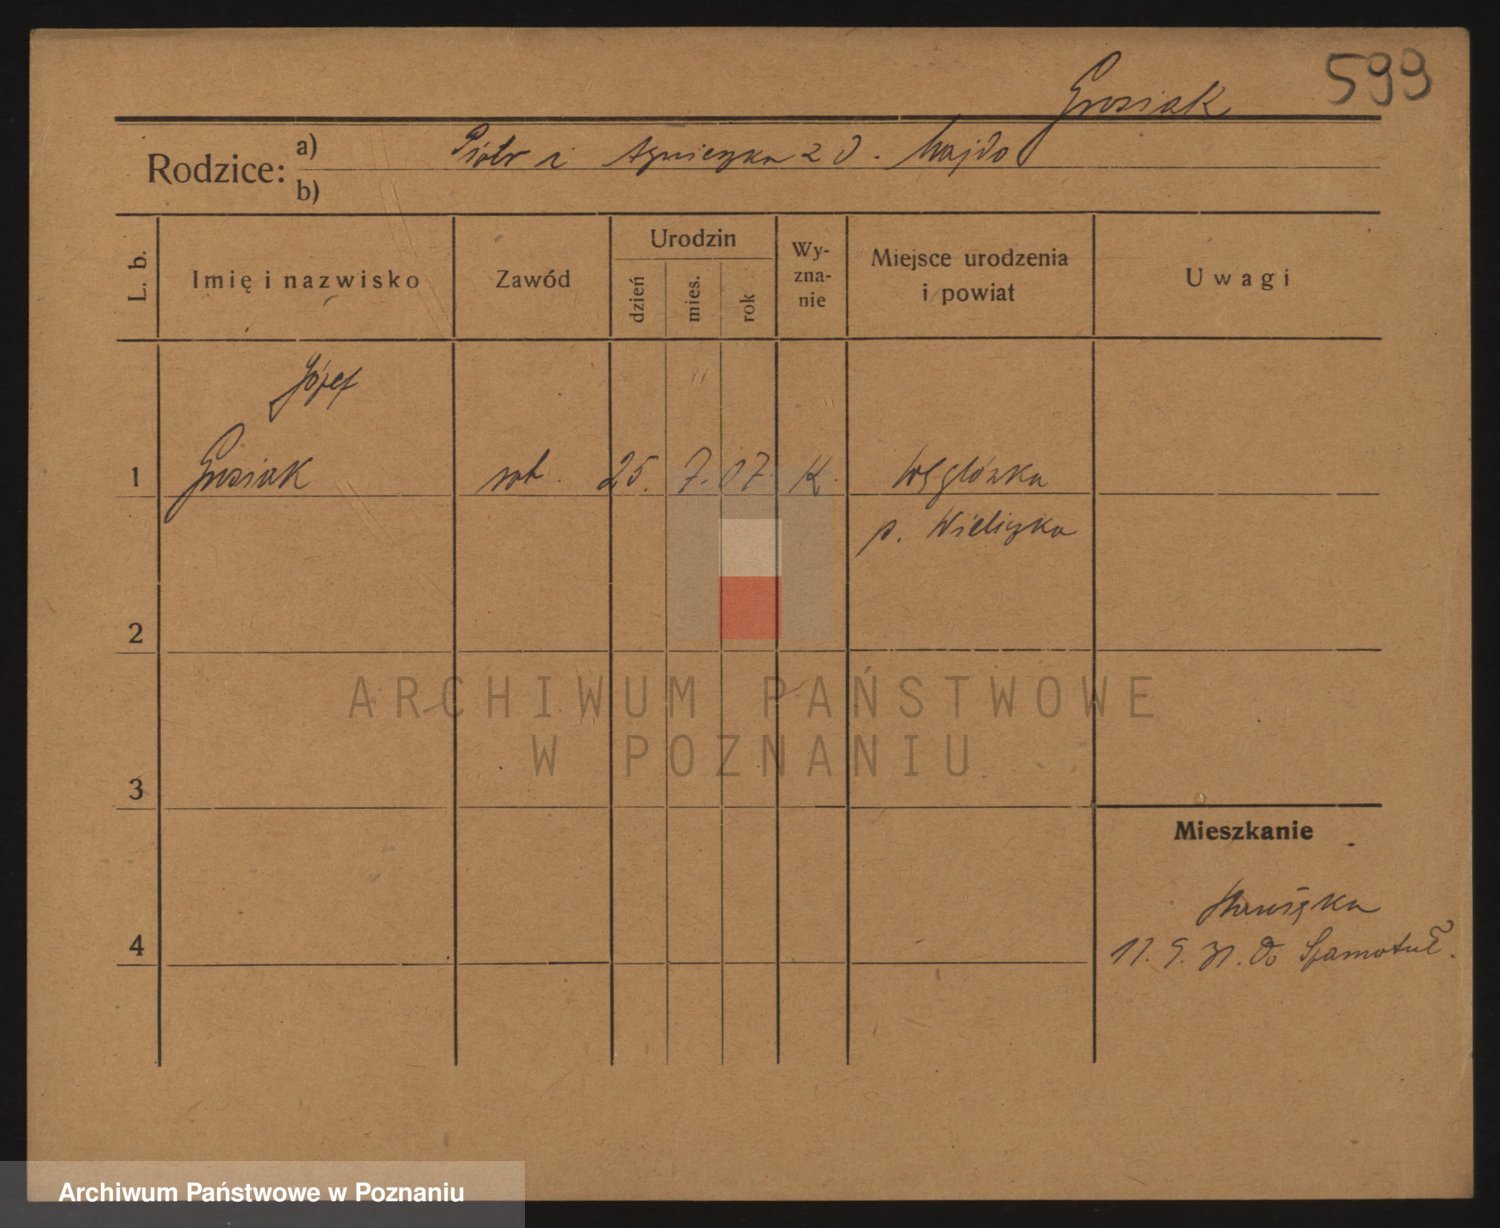 599
Grosiak
Rodzice:
a) Piotr i Agnieszka z d. Majda
b)
L. b.
Imię i nazwisko
Zawód
Urodzin
dzień
mies.
rok
Wy-
zna-
nie
Miejsce urodzenia
i powiat
Uwagi
Józef
1 Grosiak rob. 25. 7. 07. K. Węglówka
p. Wieliczka
2
3
4
Mieszkanie
do Szamotuł.
ARCHIWUM PAŃSTWOWE
W POZNANIU
Archiwum Państwowe w Poznaniu